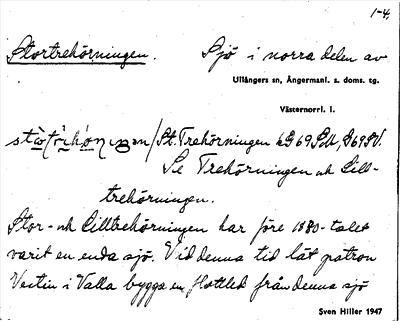 1-4,
Stortrehörningen. Sjö i norra delen av
Ullångers sn, Ångermanl. s. doms. tg.
Västernorrl. l.
St. Trehörningen kG69SV, J69SV.
Se Trehörningen ock Lill-
trehörningen.
Stor- ock Lilltrehörningen har före 1880-talet
varit en enda sjö. Vid denna tid lät patron
Vestin i Valla bygga en flottled från denna sjö
Sven Hiller 1947